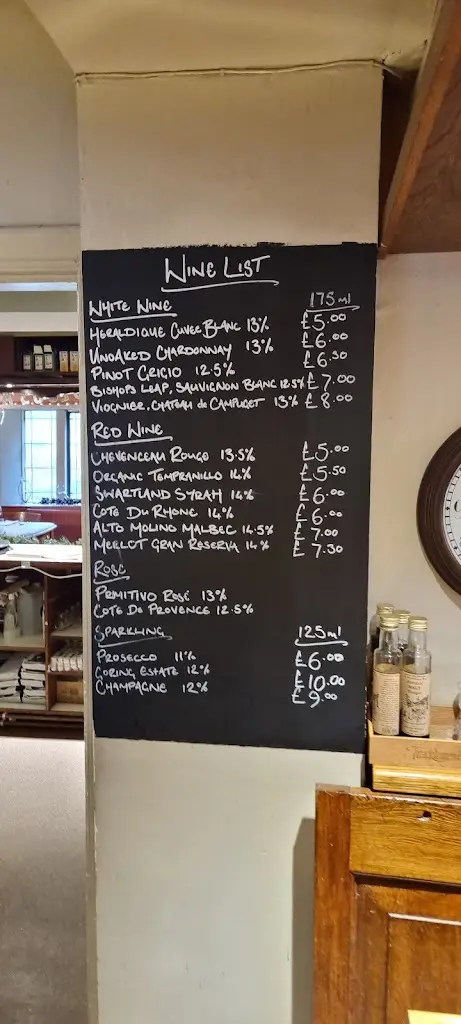 WINE LIST
WHITE WINE 175ml
HERALDIQUE CUVEE BLANC 13% £5.00
UNOAKED CHARDONNAY 13% £6.00
PINOT GRIGIO 12.5% £6.50
BISHOPS LEAP, SAUVIGNON BLANC 12.5% £7.00
VIOGNIER, CHATEAU de CAMPUGET 13% £8.00
RED WINE
CHEVENCEAU ROUGE 13.5% £5.00
ORGANIC TEMPRANILLO 14% £5.50
SWARTLAND SYRAH 14% £6.00
COTE DU RHONE 14% £6.00
ALTO MOLINO MALBEC 14.5% £7.00
MERLOT GRAN RESERVA 14% £7.50
ROSE
PRIMITIVO ROSE 13%
COTE DE PROVENCE 12.5%
SPARKLING 125ml
PROSECCO 11% £6.00
GORING ESTATE 12% £10.00
CHAMPAGNE 12% £9.00